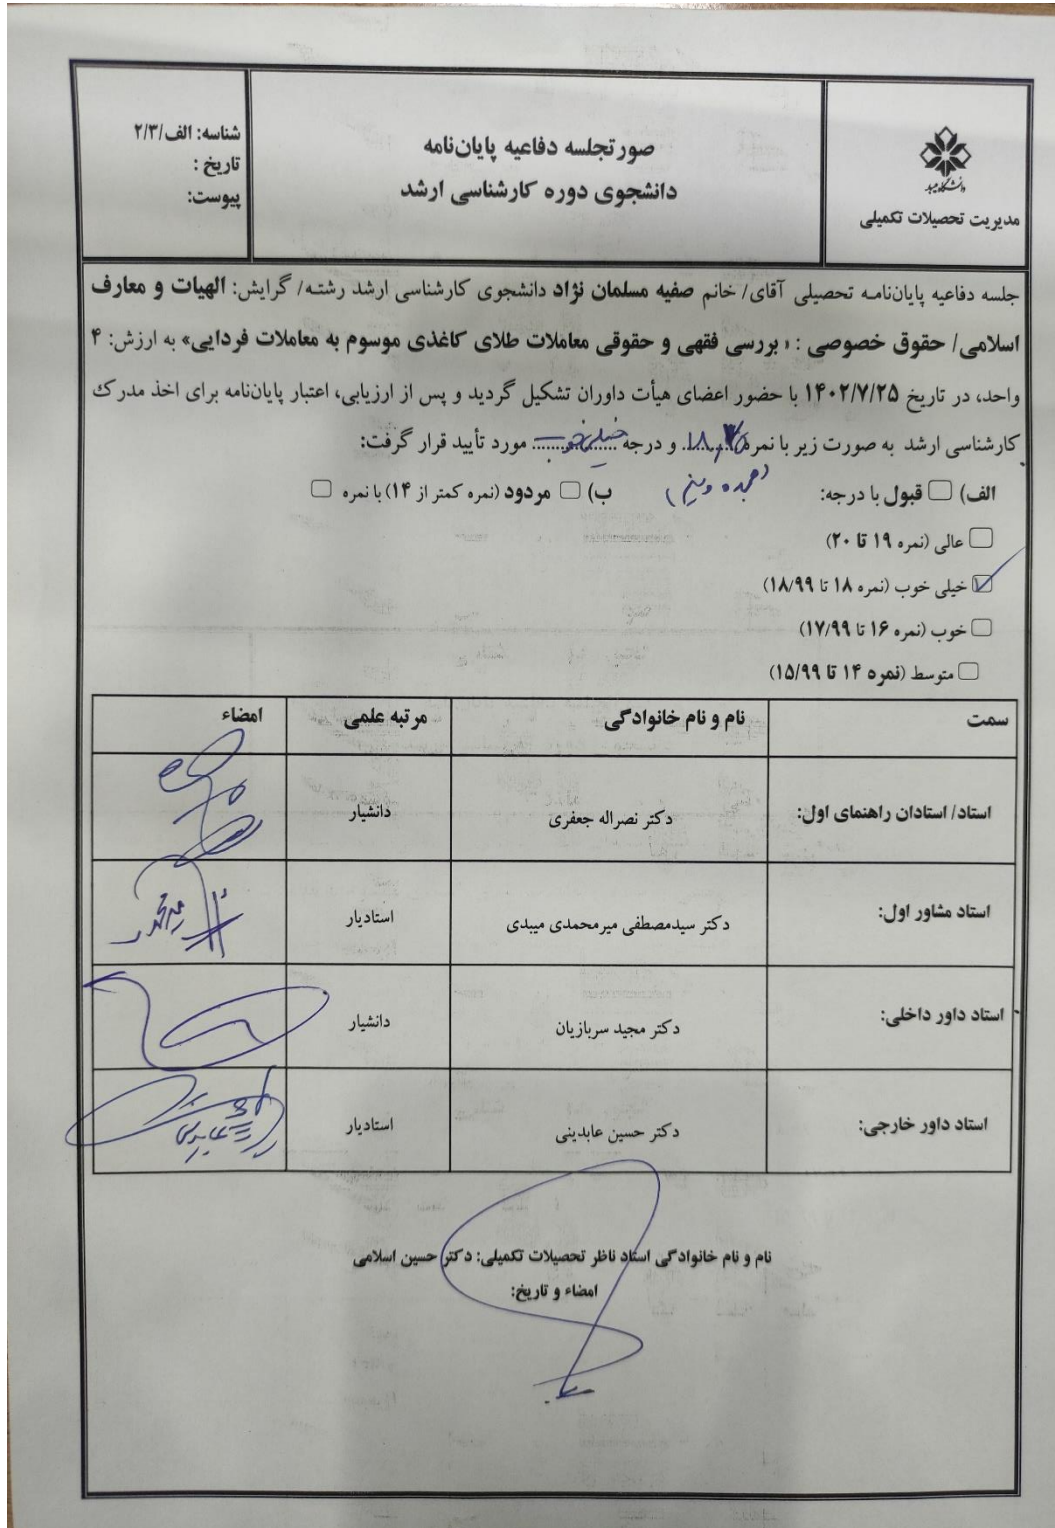 دانشگاه میبد
مدیریت تحصیلات تکمیلی
صورتجلسه دفاعیه پایان‌نامه
دانشجوی دوره کارشناسی ارشد
شناسه: الف/۲/۳
تاریخ :
پیوست:
جلسه دفاعیه پایان‌نامه تحصیلی آقای/ خانم صفیه مسلمان نژاد دانشجوی کارشناسی ارشد رشته/ گرایش: الهیات و معارف
اسلامی/ حقوق خصوصی : « بررسی فقهی و حقوقی معاملات طلای کاغذی موسوم به معاملات فردایی» به ارزش: ۴
واحد، در تاریخ ۱۴۰۲/۷/۲۵ با حضور اعضای هیأت داوران تشکیل گردید و پس از ارزیابی، اعتبار پایان‌نامه برای اخذ مدرک
کارشناسی ارشد به صورت زیر با نمره و درجه خیلی خوب مورد تأیید قرار گرفت:
الف) قبول با درجه: (هجده و نیم) ب) مردود (نمره کمتر از ۱۴) با نمره
عالی (نمره ۱۹ تا ۲۰)
خیلی خوب (نمره ۱۸ تا ۱۸/۹۹)
خوب (نمره ۱۶ تا ۱۷/۹۹)
متوسط (نمره ۱۴ تا ۱۵/۹۹)
سمت نام و نام خانوادگی مرتبه علمی امضاء
استاد/ استادان راهنمای اول: دکتر نصراله جعفری دانشیار
استاد مشاور اول: دکتر سیدمصطفی میرمحمدی میبدی استادیار
استاد داور داخلی: دکتر مجید سربازیان دانشیار
استاد داور خارجی: دکتر حسین عابدینی استادیار
نام و نام خانوادگی استاد ناظر تحصیلات تکمیلی: دکتر حسین اسلامی
امضاء و تاریخ: